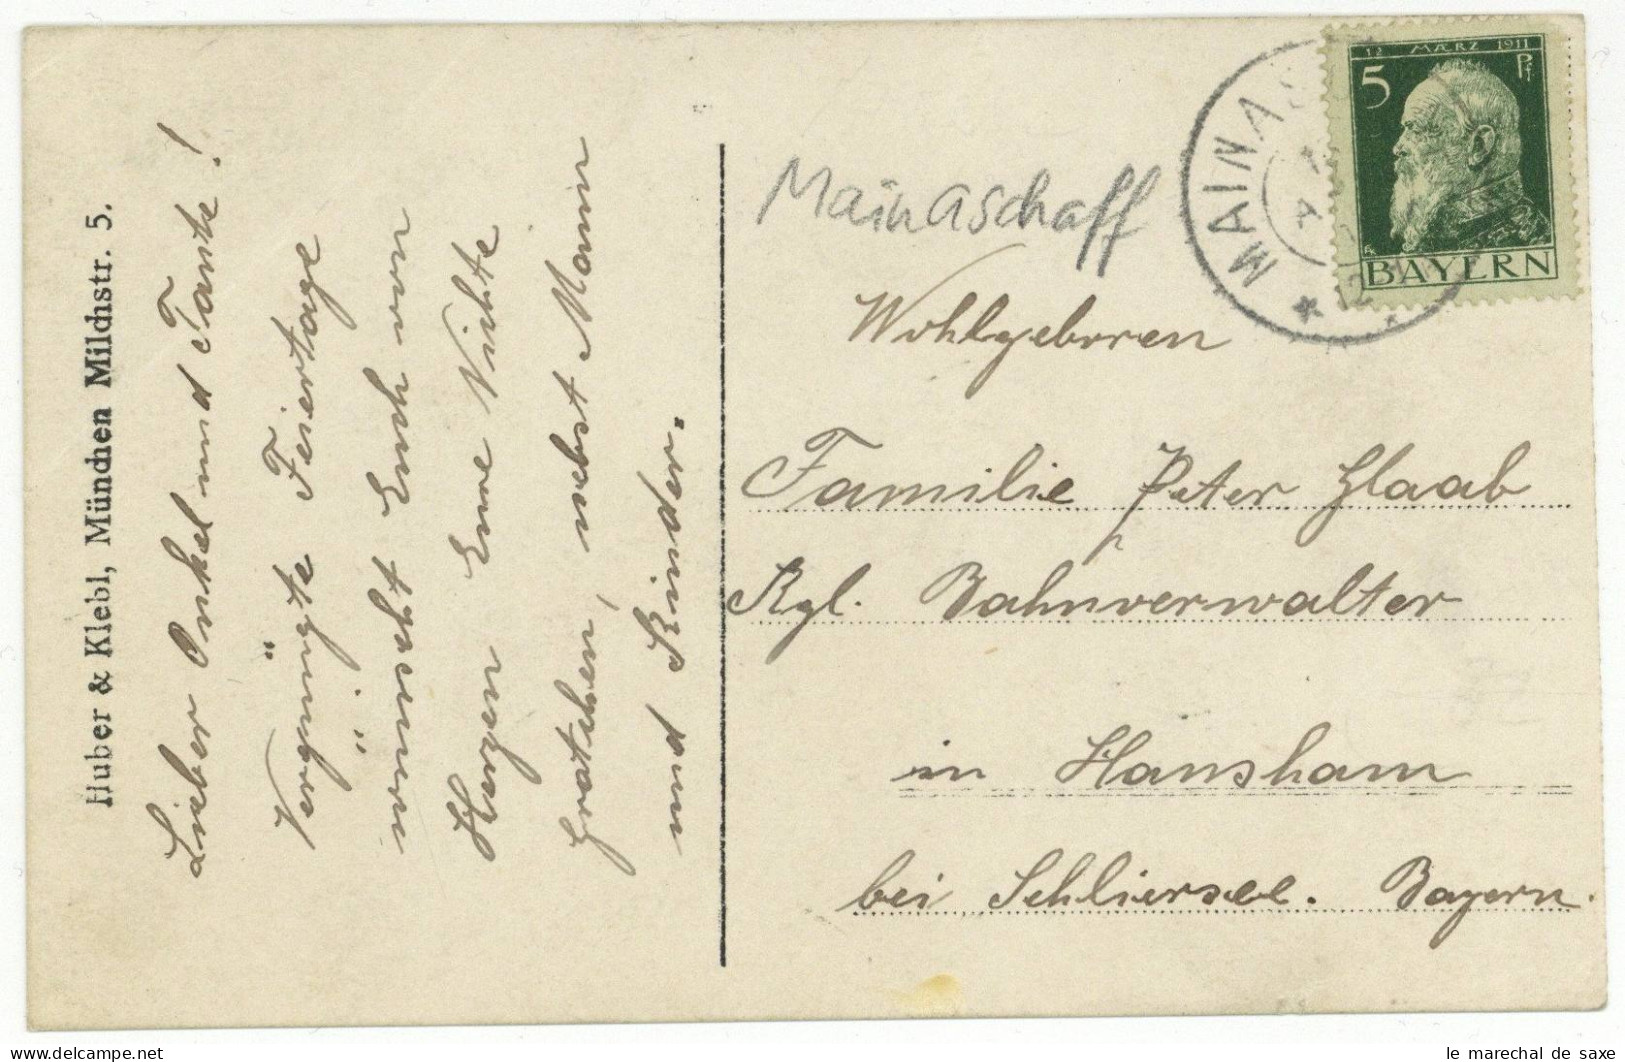 Huber & Klebl, München Milchstr. 5.
Lieber Onkel und Tante!
Vergnügte Feiertage
wünscht Euch von ganzem
Herzen Eure Nichte
Gretchen, nebst Mann
und Kinder.
Mainaschaff
MAINAS
12 MÆRZ 1911
5 Pf
BAYERN
Wohlgeboren
Familie Peter Glaab
Kgl. Bahnverwalter
in Hausham
bei Schliersee. Bayern.
le marechal de saxe